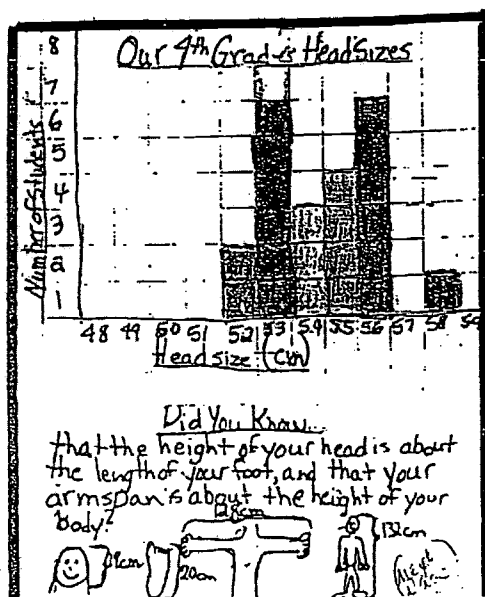 Our 4th Grade's Head Sizes
8
7
6
5
4
3
2
1
Number of Students
48 49 50 51 52 53 54 55 56 57 58 59
Head size (cm)
Did You Know...
that the height of your head is about
the length of your foot, and that your
armspan is about the height of your
body?
128cm
132cm
19cm
20cm